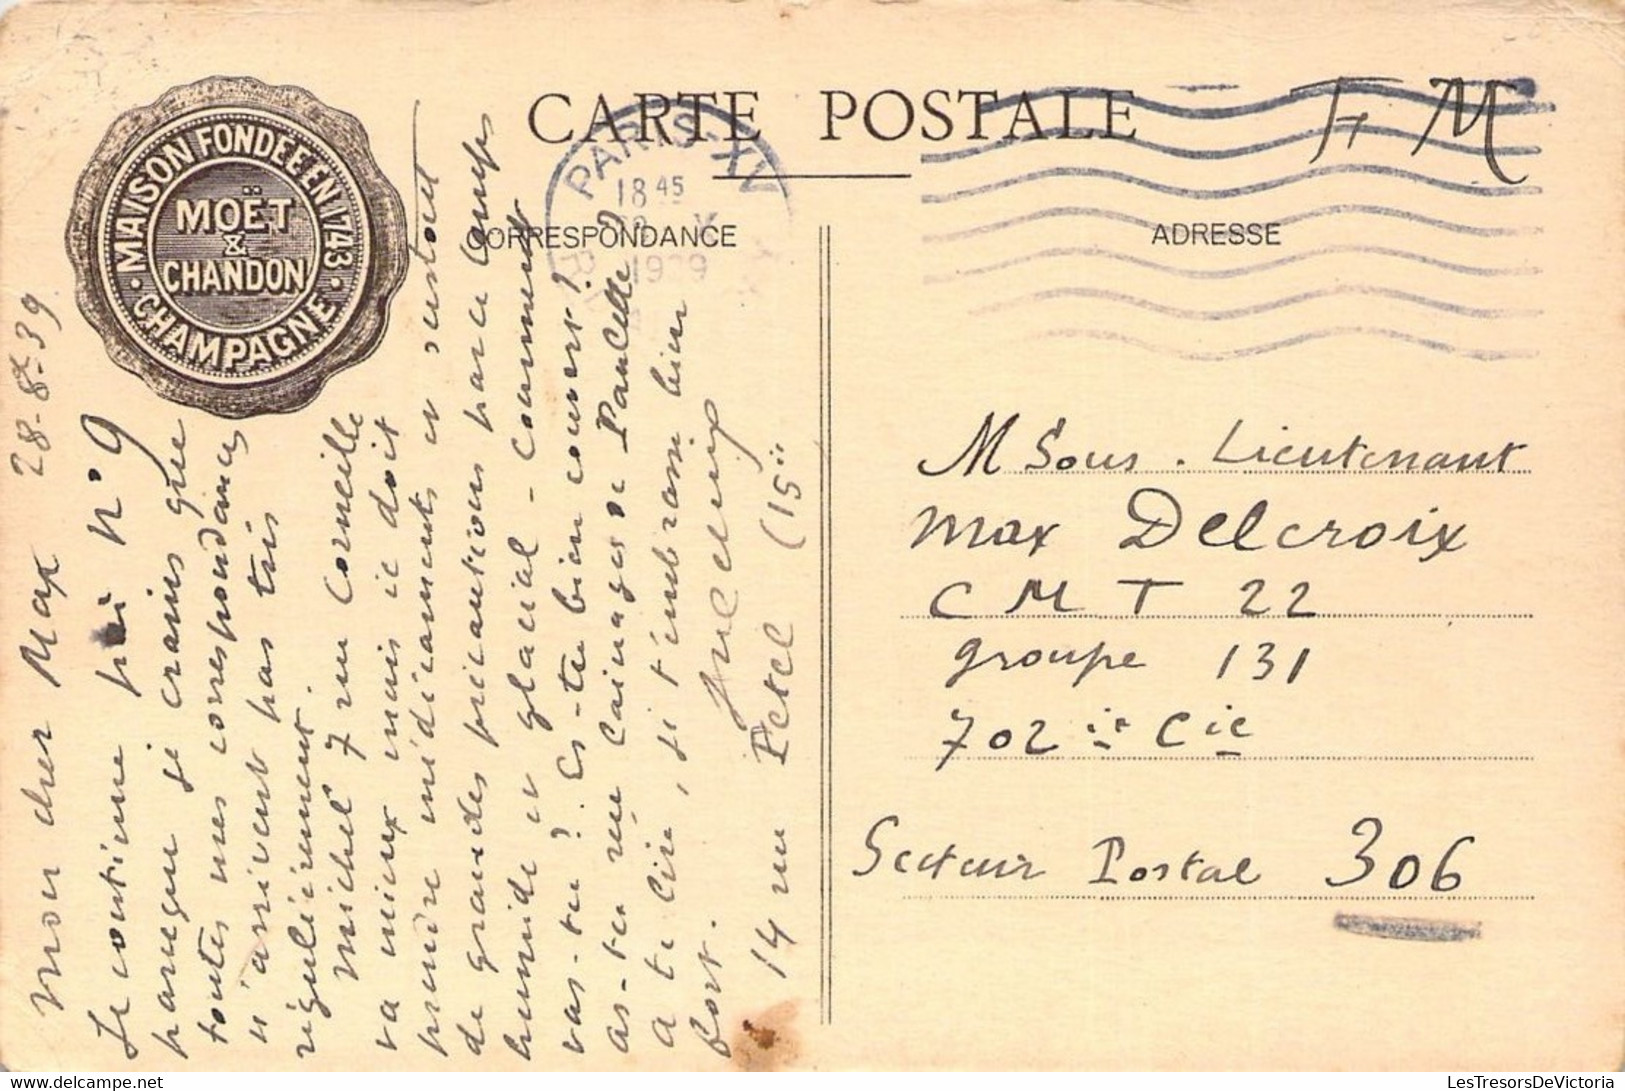 CARTE POSTALE
F M
MAISON FONDÉE EN 1743
MOËT
&
CHANDON
CHAMPAGNE
PARIS XV
18 45
1939
CORRESPONDANCE
ADRESSE
Mon cher Max 28-8bre 39
Je continue N°9
parceque je crains que
toutes mes correspondances
n'arrivent pas très
régulièrement.
Michel 7 rue Corneille
va mieux mais il doit
prendre médicaments et surtout
de grandes précautions par ce temps
humide et glacial - Comment
vas-tu ? Es-tu bien couvert ?
as-tu reçu lainages de Paulette ?
à te lire, je t'embrasse bien
fort.
14 rue Petel (15e
M Sous. Lieutenant
Max Delcroix
C M T 22
groupe 131
702ie Cie
Secteur Postal 306
LesTresorsDeVictoria
les-tresors-de-victoria.delcampe.net